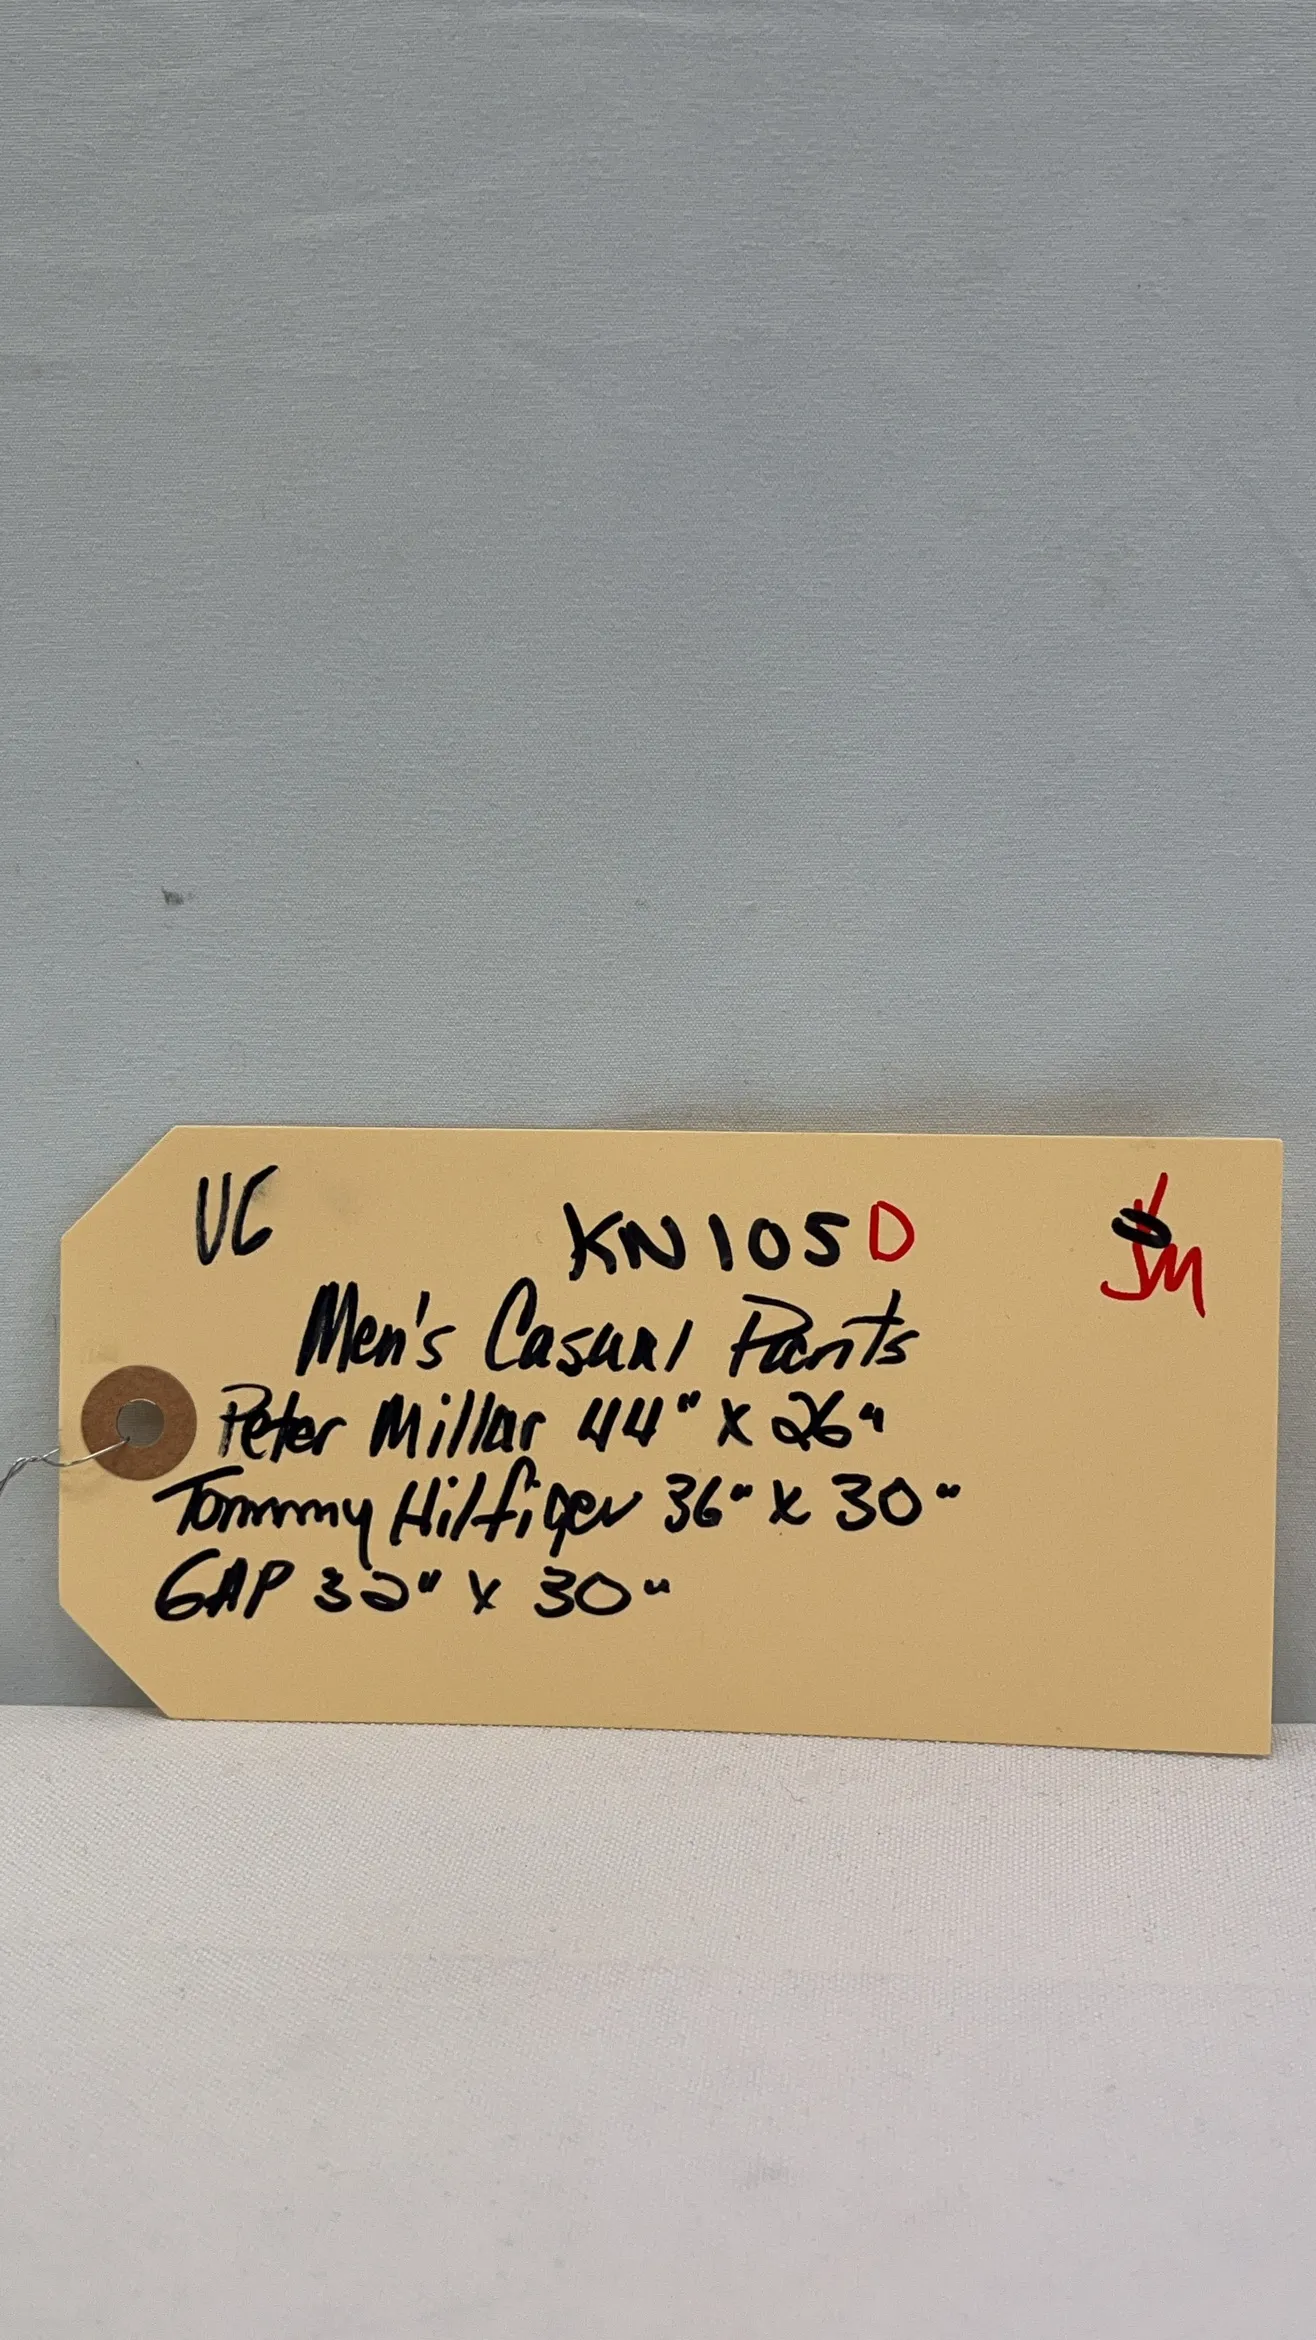 VC KN105D JM
Men's Casual Pants
Peter Millar 44" X 26"
Tommy Hilfiger 36" X 30"
GAP 32" X 30"